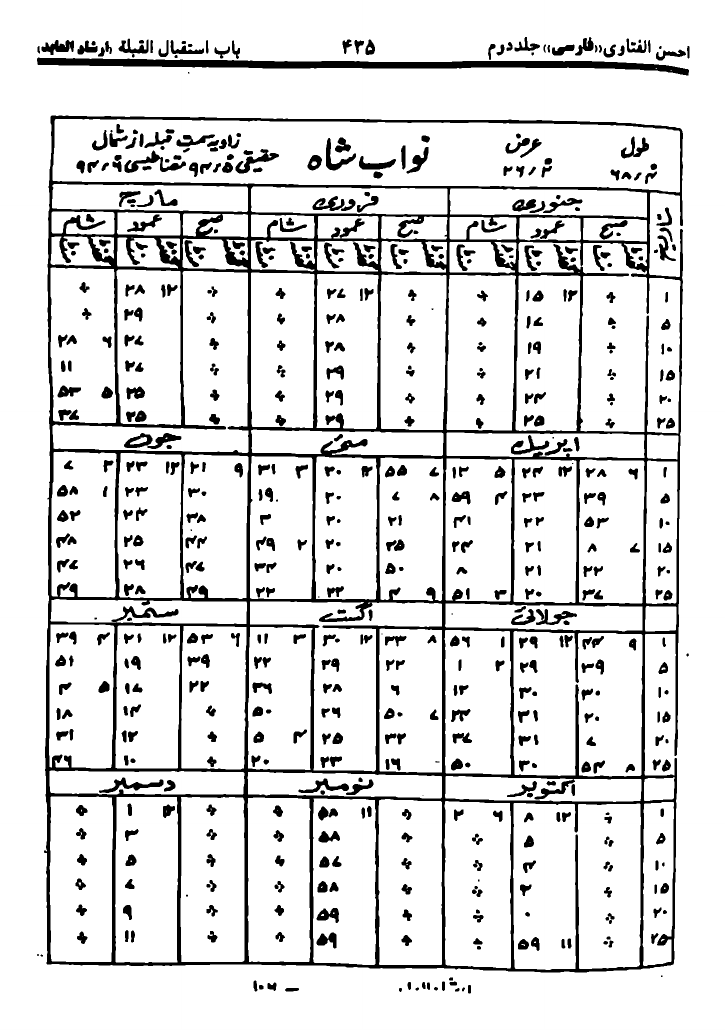 احسن الفتاوی «فارسی» جلد دوم ۴۳۵ باب استقبال القبلة (ارشاد العابد)
طول عرض نواب شاہ زاویہ سمت قبلہ از شمال
۶۸٫۴ ۲۶٫۴ حقیقی ۹۴٫۵ مقناطیسی ۹۴٫۶
تاریخ جنوری فروری مارچ
صبح عمود شام صبح عمود شام صبح عمود شام
گھنٹہ منٹ گھنٹہ منٹ گھنٹہ منٹ گھنٹہ منٹ گھنٹہ منٹ گھنٹہ منٹ گھنٹہ منٹ گھنٹہ منٹ گھنٹہ منٹ
۱ + ۱۲ ۱۵ + + ۱۲ ۲۷ + + ۱۲ ۲۸ +
۵ + ۱۷ + + ۲۸ + + ۲۹ +
۱۰ + ۱۹ + + ۲۸ + + ۲۷ ۶ ۲۸
۱۵ + ۲۱ + + ۲۹ + + ۲۷ ۱۱
۲۰ + ۲۴ + + ۲۹ + + ۲۵ ۵ ۵۳
۲۵ + ۲۵ + + ۲۹ + + ۲۵ ۳۷
اپریل مئی جون
۱ ۶ ۲۸ ۱۲ ۲۴ ۵ ۱۲ ۷ ۵۵ ۱۲ ۲۰ ۳ ۳۱ ۹ ۲۱ ۱۲ ۲۳ ۲ ۷
۵ ۳۹ ۲۳ ۴ ۵۹ ۸ ۷ ۲۰ ۱۹ ۳۰ ۲۳ ۱ ۵۸
۱۰ ۵۳ ۲۲ ۴۱ ۲۱ ۲۰ ۳ ۳۸ ۲۴ ۵۲
۱۵ ۷ ۸ ۲۱ ۲۴ ۳۵ ۲۰ ۲ ۴۹ ۴۴ ۲۵ ۴۸
۲۰ ۲۲ ۲۱ ۸ ۵۰ ۲۰ ۳۴ ۴۷ ۲۶ ۴۷
۲۵ ۳۷ ۲۰ ۳ ۵۱ ۹ ۴ ۲۲ ۲۲ ۴۹ ۲۸ ۴۹
جولائی اگست ستمبر
۱ ۹ ۴۴ ۱۲ ۲۹ ۱ ۵۶ ۸ ۳۳ ۱۲ ۳۰ ۳ ۱۱ ۶ ۵۳ ۱۲ ۲۱ ۴ ۳۹
۵ ۳۹ ۲۹ ۲ ۱ ۲۲ ۲۹ ۲۲ ۳۹ ۱۹ ۵۱
۱۰ ۳۰ ۳۰ ۱۲ ۶ ۲۸ ۳۶ ۲۲ ۱۷ ۵ ۴
۱۵ ۲۰ ۳۱ ۲۳ ۷ ۵۰ ۲۶ ۵۰ + ۱۴ ۱۸
۲۰ ۷ ۳۱ ۳۷ ۳۲ ۲۵ ۴ ۵ + ۱۲ ۳۱
۲۵ ۸ ۵۴ ۳۰ ۵۰ ۱۶ ۲۳ ۲۰ + ۱۰ ۴۶
اکتوبر نومبر دسمبر
۱ + ۱۲ ۸ ۶ ۲ + ۱۱ ۵۸ + + ۱۲ ۱ +
۵ + ۵ + + ۵۸ + + ۳ +
۱۰ + ۴ + + ۵۷ + + ۵ +
۱۵ + ۲ + + ۵۸ + + ۷ +
۲۰ + ۰ + + ۵۹ + + ۹ +
۲۵ + ۱۱ ۵۹ + + ۵۹ + + ۱۱ +